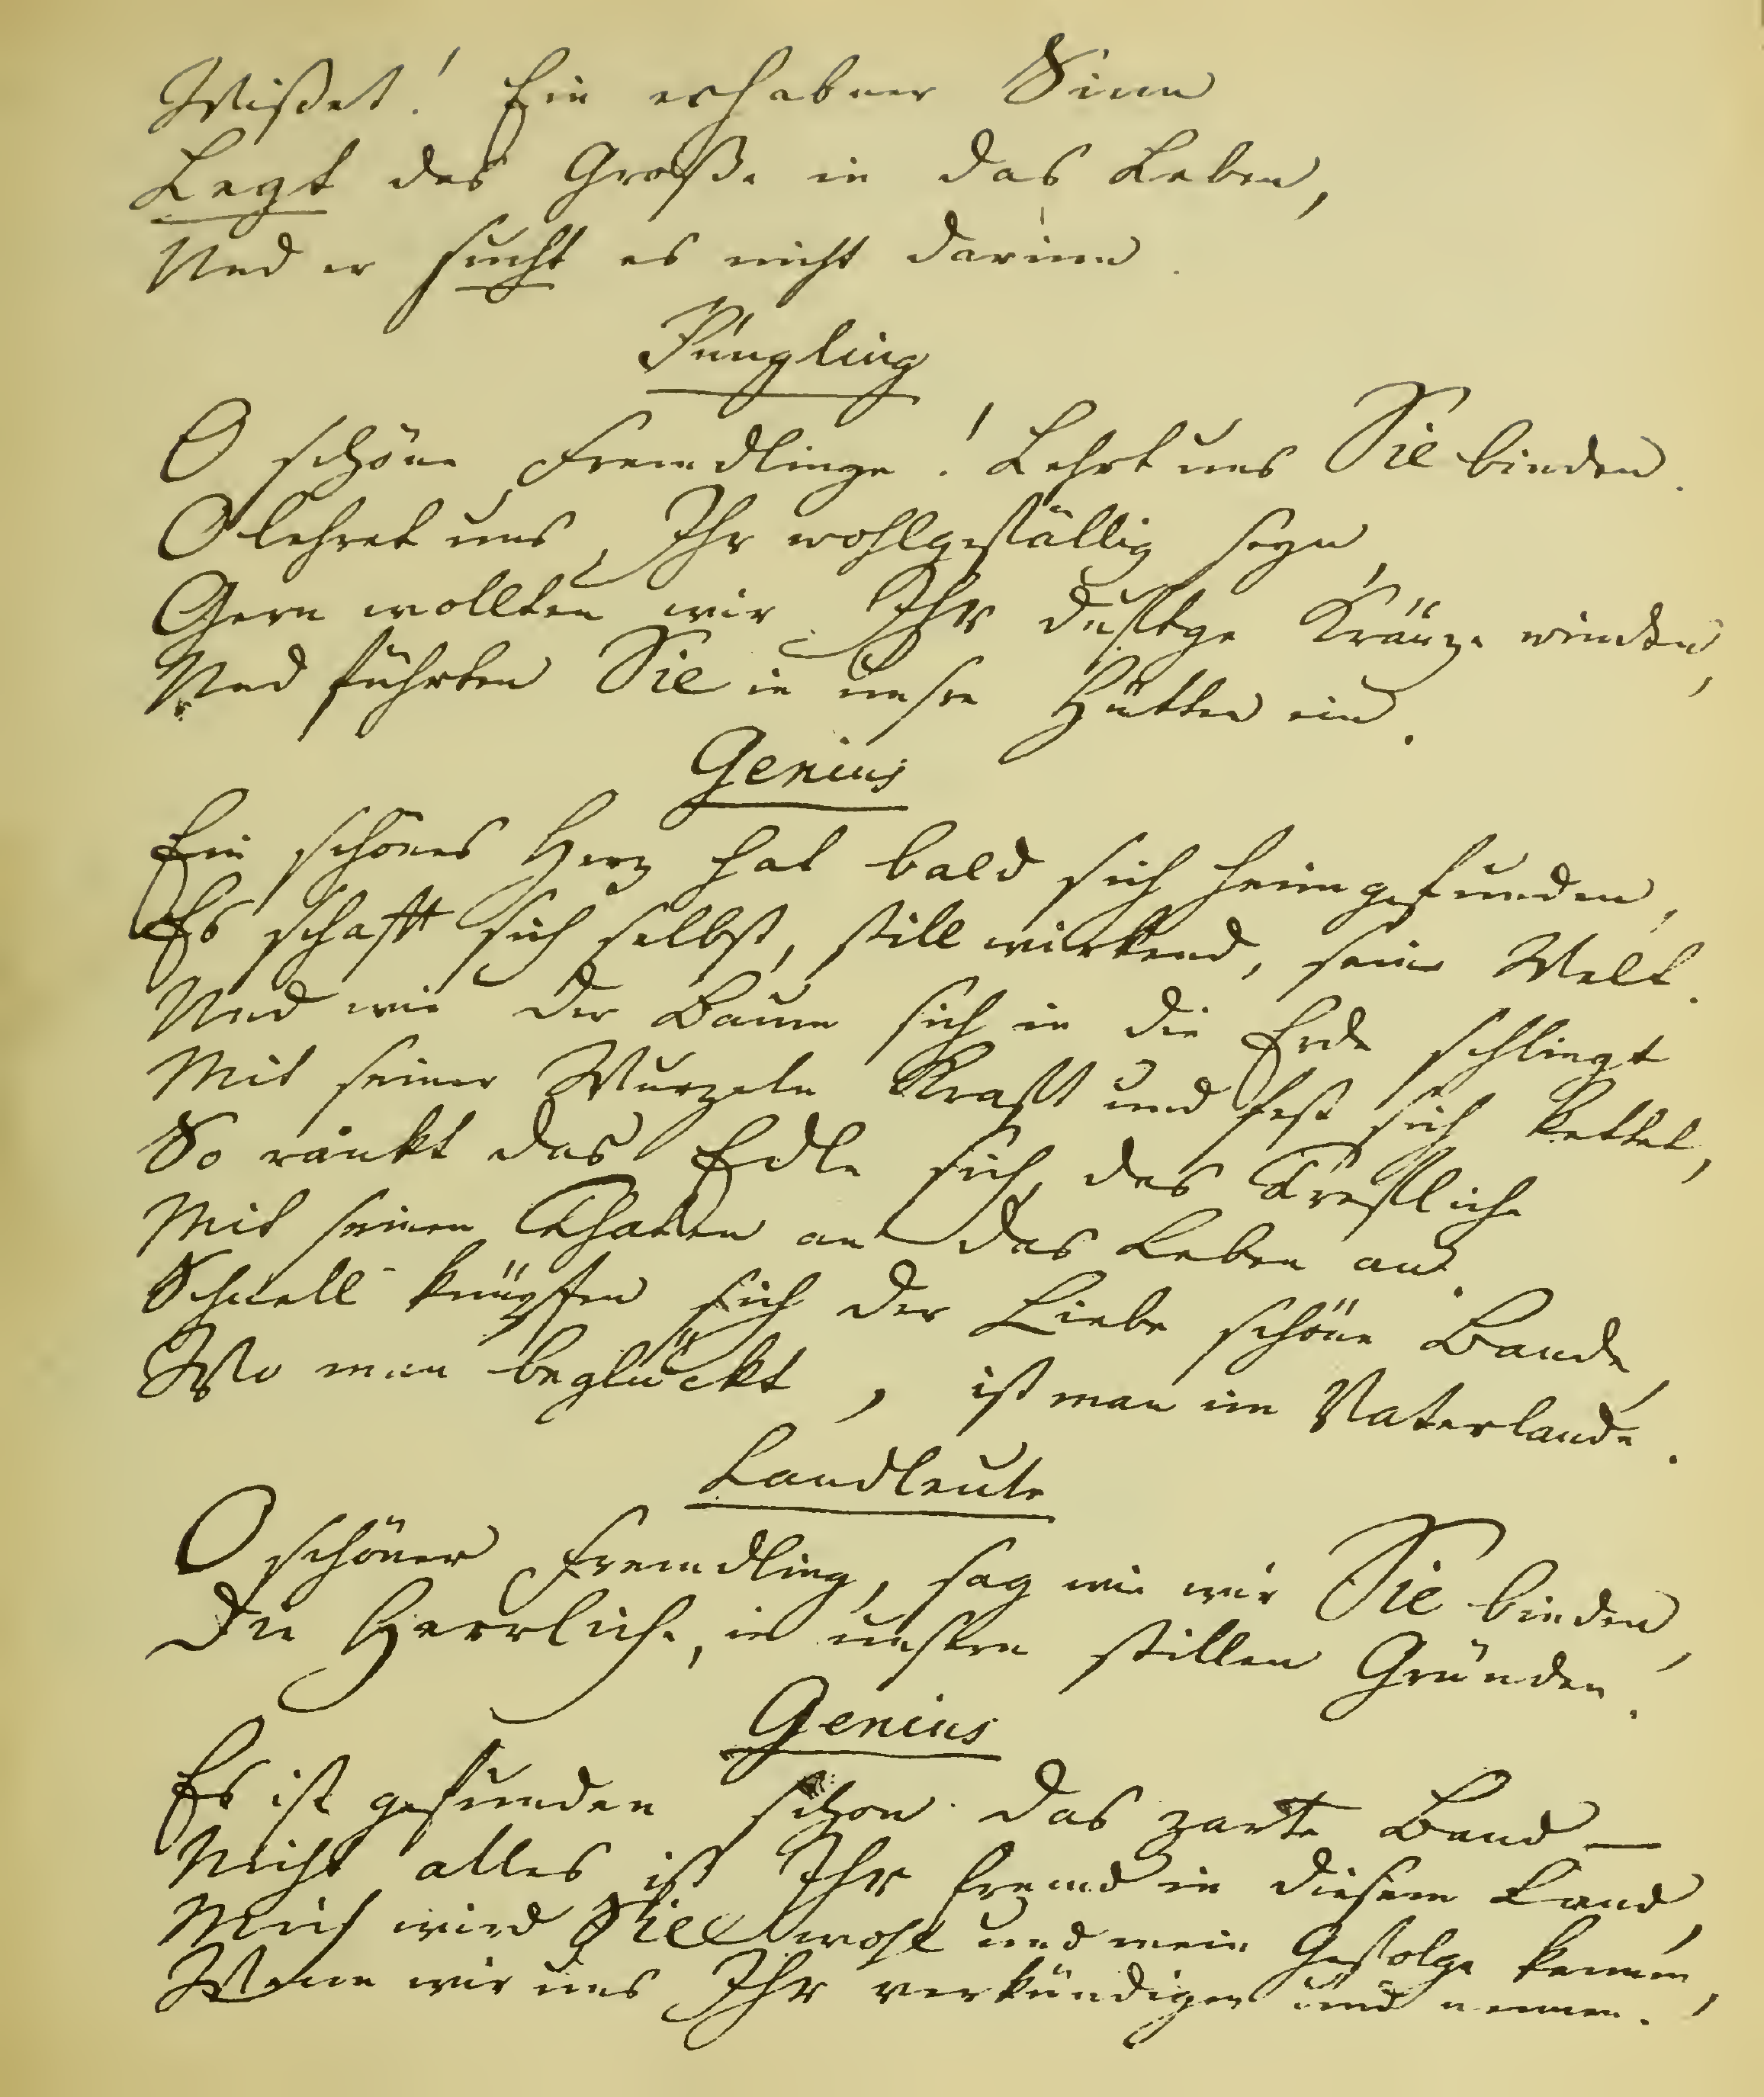 Wißet! Ein erhabner Sinn
Legt das Große in das Leben,
Und er sucht es nicht darinn.
Jüngling
O schöne Fremdlinge! Lehrt uns Sie binden.
O lehret uns, Ihr wohlgefällig seyn,
Gern wollten wir Ihr duftge Kränze winden,
Und führten Sie in unsre Hütten ein.
Genius
Ein schönes Herz hat bald sich heimgefunden,
Es schafft sich selbst, still wirkend, seine Welt.
Und wie der Baum sich in die Erde schlingt
Mit seiner Wurzeln Kraft und fest sich kettet,
So rankt das Edle sich, das Trefliche
Mit seinen Thaten an das Leben an.
Schnell knüpfen sich der Liebe schöne Bande,
Wo man beglückt, ist man im Vaterlande.
Landleute
O schöner Fremdling, sag wie wir Sie binden,
Die Herrliche, in unsern stillen Gründen!
Genius
Es ist gefunden schon das zarte Band –
Nicht alles ist Ihr fremd in diesem Land,
Mich wird Sie wohl und mein Gefolge kennen,
Wenn wir uns Ihr verkündigen und nennen.